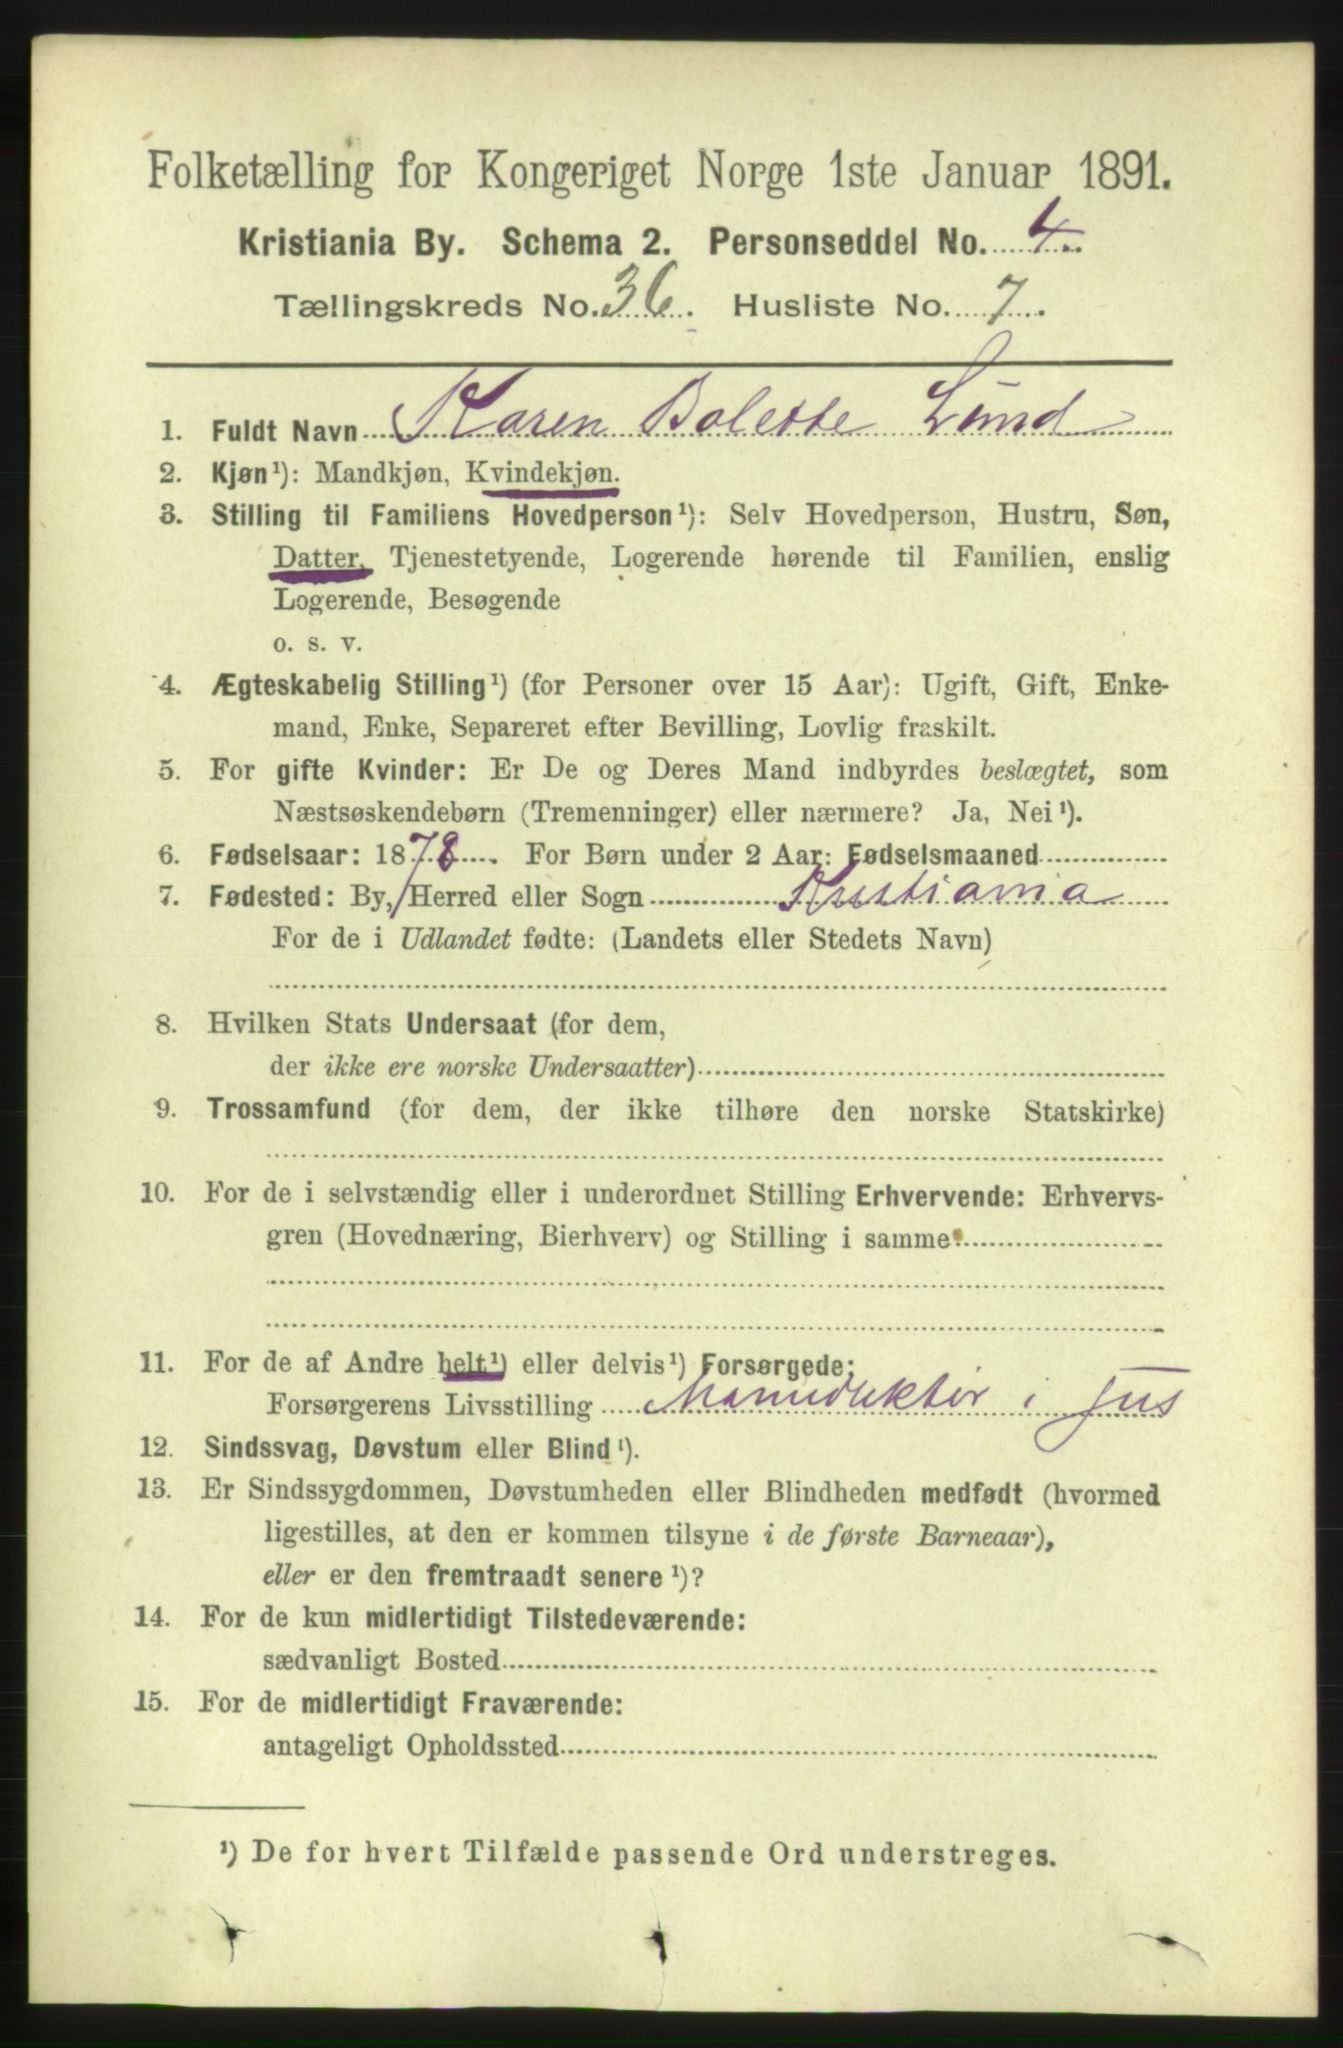 Folketælling for Kongeriget Norge 1ste Januar 1891.
Kristiania By. Schema 2. Personseddel No. 4.
Tællingskreds No. 36. Husliste No. 7.
1. Fuldt Navn Karen Bolette Lund
2. Kjøn¹): Mandkjøn, Kvindekjøn.
3. Stilling til Familiens Hovedperson¹): Selv Hovedperson, Hustru, Søn,
Datter, Tjenestetyende, Logerende hørende til Familien, enslig
Logerende, Besøgende
o. s. v.
4. Ægteskabelig Stilling¹) (for Personer over 15 Aar): Ugift, Gift, Enke-
mand, Enke, Separeret efter Bevilling, Lovlig fraskilt.
5. For gifte Kvinder: Er De og Deres Mand indbyrdes beslægtet, som
Næstsøskendebørn (Tremenninger) eller nærmere? Ja, Nei¹).
6. Fødselsaar: 1878. For Børn under 2 Aar: Fødselsmaaned
7. Fødested: By, Herred eller Sogn Kristiania
For de i Udlandet fødte: (Landets eller Stedets Navn)
8. Hvilken Stats Undersaat (for dem,
der ikke ere norske Undersaatter)
9. Trossamfund (for dem, der ikke tilhøre den norske Statskirke)
10. For de i selvstændig eller i underordnet Stilling Erhvervende: Erhvervs-
gren (Hovednæring, Bierhverv) og Stilling i samme
11. For de af Andre helt¹) eller delvis¹) Forsørgede:
Forsørgerens Livsstilling Manuduktør i Jus
12. Sindssvag, Døvstum eller Blind¹).
13. Er Sindssygdommen, Døvstumheden eller Blindheden medfødt (hvormed
ligestilles, at den er kommen tilsyne i de første Barneaar),
eller er den fremtraadt senere¹)?
14. For de kun midlertidigt Tilstedeværende:
sædvanligt Bosted
15. For de midlertidigt Fraværende:
antageligt Opholdssted
¹) De for hvert Tilfælde passende Ord understreges.